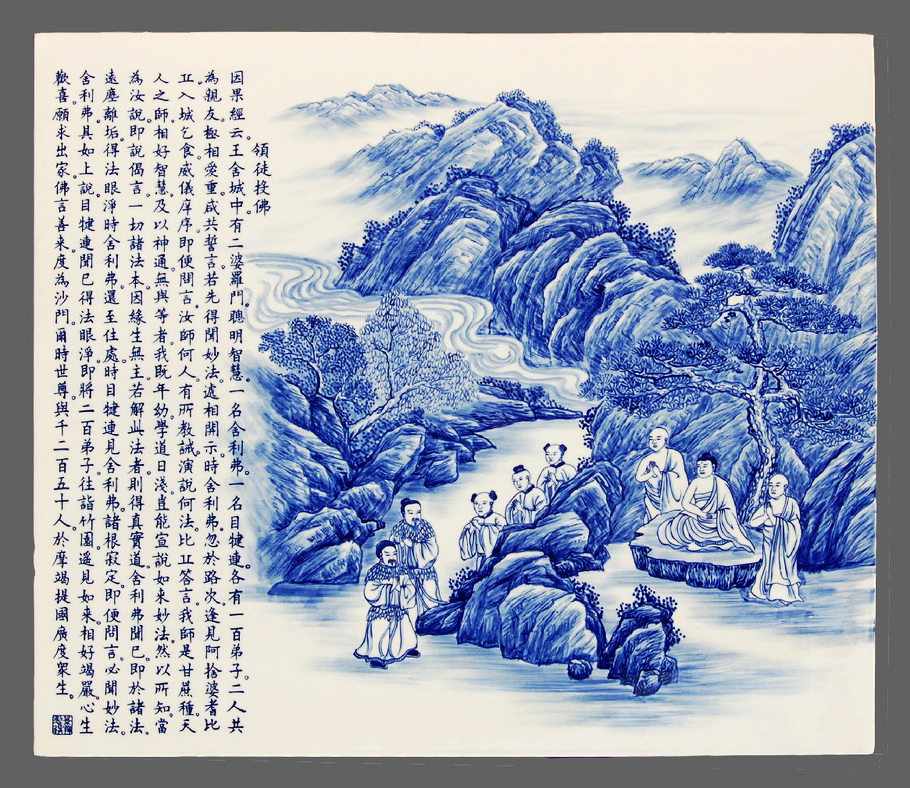 領徒投佛
因果經云。王舍城中有二婆羅門。聰明智慧。一名舍利弗。一名目犍連。各有一百弟子。二人共
為親友。極相愛重。咸共誓言。若先得聞妙法。遞相開示。時舍利弗。忽於路次。逢見阿捨婆耆比
丘入城乞食。威儀庠序。即便問言。汝師何人。有所教誡。演說何法。比丘答言。我師是甘蔗種天
人之師。相好智慧。及以神通。無與等者。我既年幼。學道日淺。豈能宣說如來妙法。然以所知。當
為汝說。即說偈言。一切諸法本。因緣生無主。若解此法者。則得真實道。舍利弗聞已。即於諸法。
遠塵離垢。得法眼淨。時舍利弗。還至住處。時目犍連。見舍利弗。諸根寂定。即便問言。必聞妙法。
舍利弗具如上說。目犍連聞已。得法眼淨。即將二百弟子。往詣竹園。遥見如來相好竭嚴。心生
歡喜。願求出家。佛言善來。度為沙門。爾時世尊。與千二百五十人。於摩竭提國。廣度衆生。